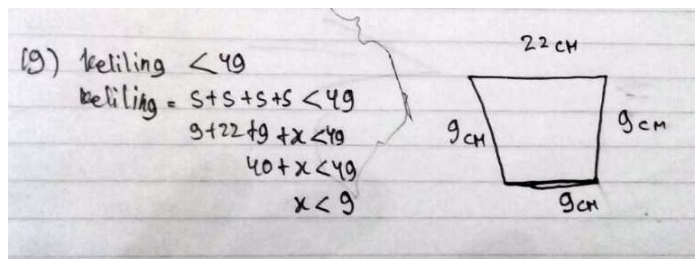 19) keliling < 49
keliling = s+s+s+s < 49
9+22+9+x<49
40+x<49
x < 9
22 cm
9 cm
9 cm
9cm